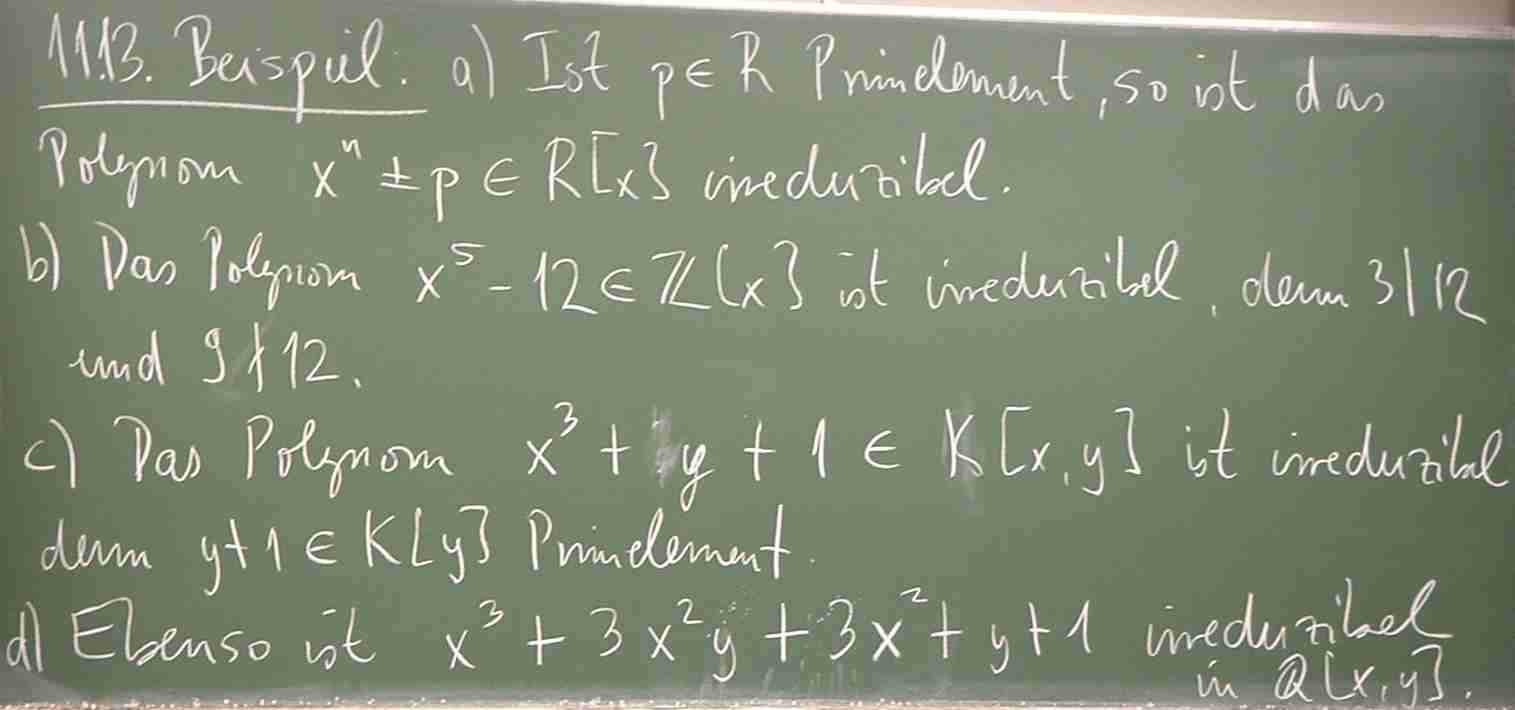 11.13. Beispiel: a) Ist p ∈ R Primelement, so ist das
Polynom xⁿ ± p ∈ R[x] irreduzibel.
b) Das Polynom x⁵ - 12 ∈ ℤ[x] ist irreduzibel, denn 3 | 12
und 9 ∤ 12.
c) Das Polynom x³ + y + 1 ∈ K[x,y] ist irreduzibel
denn y+1 ∈ K[y] Primelement.
d) Ebenso ist x³ + 3x²y + 3x² + y + 1 irreduzibel
in ℚ[x,y].